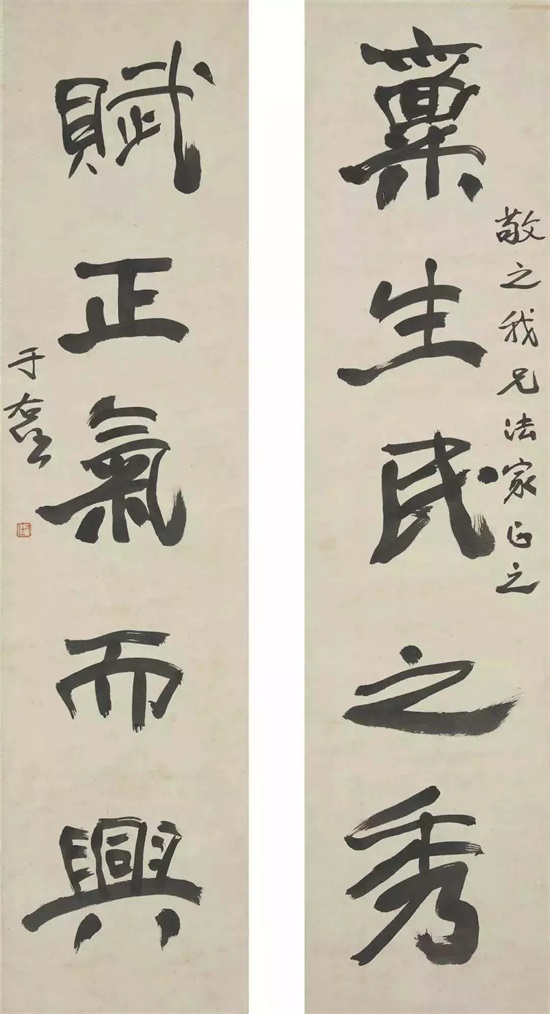 敬之我兄法家正之
稟生民之秀
賦正氣而興
于右任